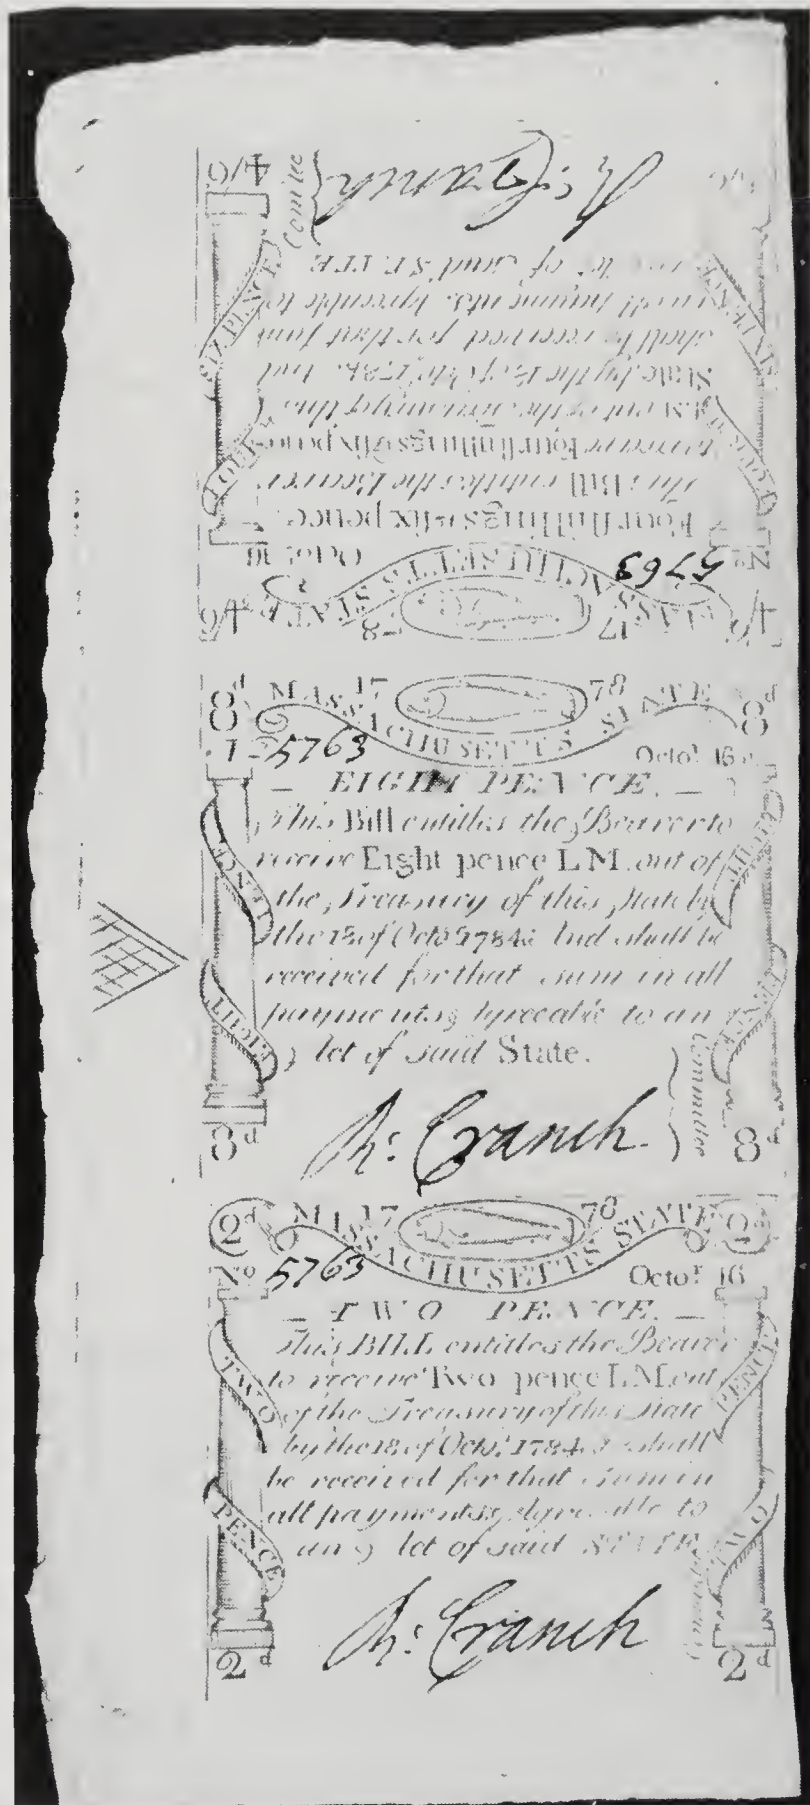 4/6
Four shillings & six pence.
This Bill entitles the Bearer
to receive Four shillings & six pence
out of the Treasury of this
State by the 18 of Octo. 1784. And
shall be received for that sum
in all payments, Agreeable to
Act of said STATE
R: Cranch
Comitee
SIX PENCE
FOUR
MASSACHUSETTS STATE
17 78
No. 5763
8d 8d
MASSACHUSETTS STATE
17 78
5763 Octor. 16
EIGHT PENCE.
This Bill entitles the Bearer to
receive Eight pence L M. out of
the Treasury of this State by
the 18 of Octo. 1784 & And shall be
received for that sum in all
payments, Agreeable to an
Act of said State.
R: Cranch
Committee
EIGHT
PENCE
8d 8d
2d 2d
MASSACHUSETTS STATE
17 78
No 5763 Octor. 16
TWO PENCE.
This BILL entitles the Bearer
to receive Two pence L M. out
of the Treasury of this State
by the 18 of Octr. 1784 & shall
be received for that Sum in
all payments, Agreeable to
an Act of said STATE
R: Cranch
TWO
PENCE
PENCE
TWO
2d 2d